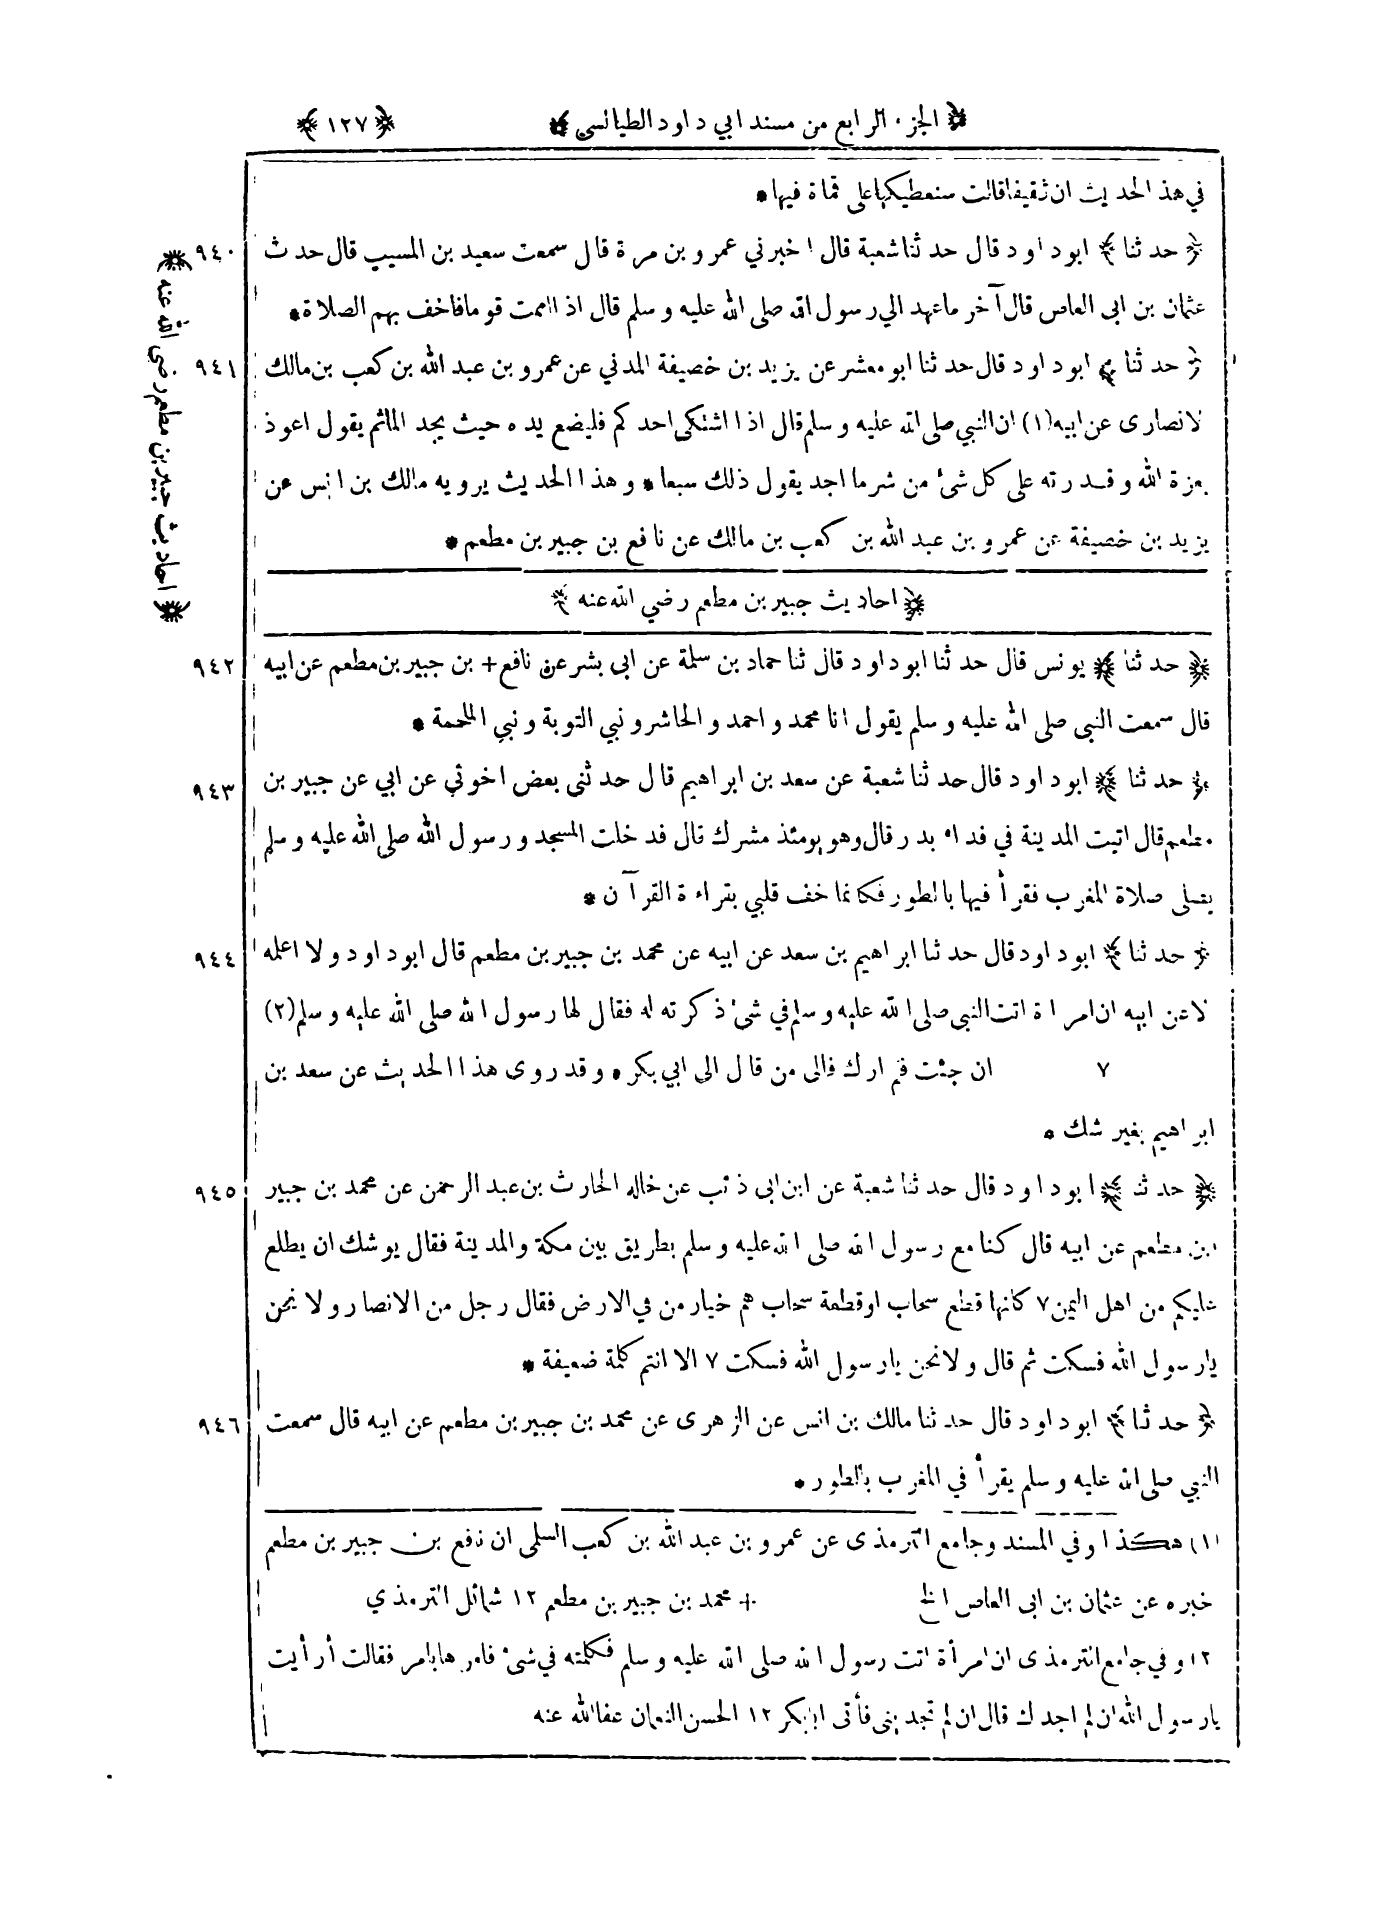 ﴿ الجزء الرابع من مسند ابي داود الطيالسي ﴾ ﴿ ١٢٧ ﴾
في هذ الحديث ان ثقيفا قالت سنعطيكها على قماة فيها *
٩٤٠ ﴿ حدثنا ﴾ ابو داود قال حدثنا شعبة قال اخبرني عمرو بن مرة قال سمعت سعيد بن المسيب قال حدث
عثمان بن ابى العاص قال آخر ما عهد الي رسول الله صلى الله عليه و سلم قال اذا اممت قوما فاخف بهم الصلاة *
٩٤١ ﴿ حدثنا ﴾ ابو داود قال حدثنا ابو معشر عن يزيد بن خصيفة المدني عن عمرو بن عبد الله بن كعب بن مالك
لانصارى عن ابيه (١) ان النبي صلى الله عليه و سلم قال اذا اشتكى احدكم فليضع يده حيث يجد الماثم يقول اعوذ
بعزة الله و قدرته على كل شئ من شر ما اجد يقول ذلك سبعا * و هذا الحديث يرويه مالك بن انس عن
يزيد بن خصيفة عن عمرو بن عبد الله بن كعب بن مالك عن نافع بن جبير بن مطعم *
﴿ احاديث جبير بن مطعم رضي الله عنه ﴾
﴿ احاديث جبير بن مطعم رضى الله عنه ﴾
٩٤٢ ﴿ حدثنا ﴾ يونس قال حدثنا ابو داود قال ثنا حماد بن سلمة عن ابى بشر عن نافع + بن جبير بن مطعم عن ابيه
قال سمعت النبى صلى الله عليه و سلم يقول انا محمد و احمد و الحاشر و نبي التوبة و نبي الملحمة *
٩٤٣ ﴿ حدثنا ﴾ ابو داود قال حدثنا شعبة عن سعد بن ابراهيم قال حدثنى بعض اخوتي عن ابي عن جبير بن
مطعم قال اتيت المدينة في فداء بدر قال وهو يومئذ مشرك قال فدخلت المسجد و رسول الله صلى الله عليه و سلم
يصلى صلاة المغرب فقرأ فيها بالطور فكانما خف قلبي بقراءة القرآن *
٩٤٤ ﴿ حدثنا ﴾ ابو داود قال حدثنا ابراهيم بن سعد عن ابيه عن محمد بن جبير بن مطعم قال ابو داود و لا اعلمه
لا عن ابيه ان امراة اتت النبى صلى الله عليه و سلم في شئ ذكرته له فقال لها رسول الله صلى الله عليه و سلم (٢)
٧ ان جئت فلم ارك فالى من قال الى ابي بكر * و قد روى هذا الحديث عن سعد بن
ابراهيم بغير شك *
٩٤٥ ﴿ حدثنا ﴾ ابو داود قال حدثنا شعبة عن ابن ابى ذئب عن خاله الحارث بن عبد الرحمن عن محمد بن جبير
ابن مطعم عن ابيه قال كنا مع رسول الله صلى الله عليه و سلم بطريق بين مكة والمدينة فقال يوشك ان يطلع
عليكم من اهل اليمن ٧ كانها قطع سحاب او قطعة سحاب هم خيار من في الارض فقال رجل من الانصار و لا نحن
يا رسول الله فسكت ثم قال و لا نحن يا رسول الله فسكت ٧ الا انتم كلمة ضعيفة *
٩٤٦ ﴿ حدثنا ﴾ ابو داود قال حدثنا مالك بن انس عن الزهرى عن محمد بن جبير بن مطعم عن ابيه قال سمعت
النبي صلى الله عليه و سلم يقرأ في المغرب بالطور *
(١) هكذا و في المسند و جامع الترمذى عن عمرو بن عبد الله بن كعب السلمى ان نافع بن جبير بن مطعم
خبره عن عثمان بن ابى العاص الخ + محمد بن جبير بن مطعم ١٢ شمائل الترمذي
١٢ و في جامع الترمذى ان امرأة اتت رسول الله صلى الله عليه و سلم فكلمته في شئ فامرها بامر فقالت أرأيت
يا رسول الله ان لم اجدك قال ان لم تجديني فأتى ابابكر ١٢ الحسن النعمان عفا الله عنه